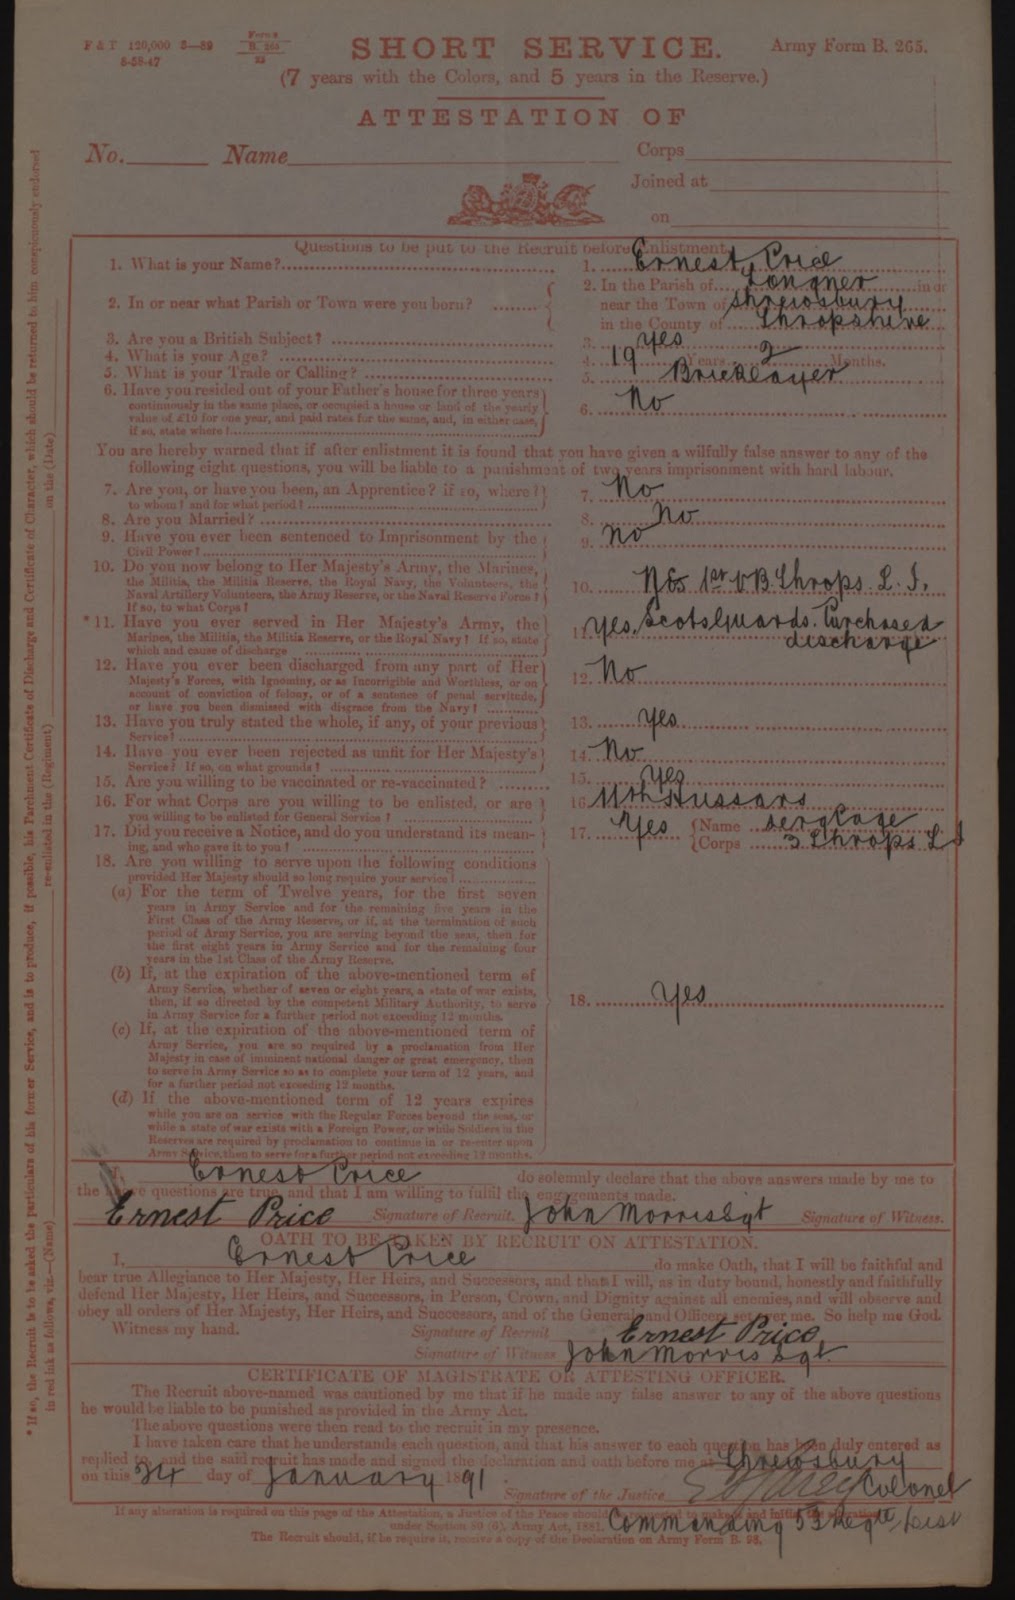 F & T 120,000 3—89
5-58-47
Form
B. 265
22
SHORT SERVICE.
Army Form B. 265.
(7 years with the Colors, and 5 years in the Reserve.)
ATTESTATION OF
No. Name Corps
Joined at
on
Questions to be put to the Recruit before Enlistment.
1. What is your Name? 1. Ernest Price
2. In or near what Parish or Town were you born? 2. In the Parish of Longner in or
near the Town of Shrewsbury
in the County of Shropshire
3. Are you a British Subject? 3. Yes
4. What is your Age? 4. 19 Years 2 Months.
5. What is your Trade or Calling? 5. Bricklayer
6. Have you resided out of your Father's house for three years
continuously in the same place, or occupied a house or land of the yearly
value of £10 for one year, and paid rates for the same, and, in either case,
if so, state where? 6. No
You are hereby warned that if after enlistment it is found that you have given a wilfully false answer to any of the
following eight questions, you will be liable to a punishment of two years imprisonment with hard labour.
7. Are you, or have you been, an Apprentice? if so, where?
to whom? and for what period? 7. No
8. Are you Married? 8. No
9. Have you ever been sentenced to Imprisonment by the
Civil Power? 9. No
10. Do you now belong to Her Majesty's Army, the Marines,
the Militia, the Militia Reserve, the Royal Navy, the Volunteers, the
Naval Artillery Volunteers, the Army Reserve, or the Naval Reserve Force?
If so, to what Corps? 10. Yes 1st V B Shrops. L. I.
* 11. Have you ever served in Her Majesty's Army, the
Marines, the Militia, the Militia Reserve, or the Royal Navy? If so, state
which and cause of discharge 11. Yes, Scots Guards. Purchased
discharge
12. Have you ever been discharged from any part of Her
Majesty's Forces, with Ignominy, or as Incorrigible and Worthless, or on
account of conviction of felony, or of a sentence of penal servitude,
or have you been dismissed with disgrace from the Navy? 12. No
13. Have you truly stated the whole, if any, of your previous
Service? 13. Yes
14. Have you ever been rejected as unfit for Her Majesty's
Service? If so, on what grounds? 14. No
15. Are you willing to be vaccinated or re-vaccinated? 15. Yes
16. For what Corps are you willing to be enlisted, or are
you willing to be enlisted for General Service? 16. 11th Hussars
17. Did you receive a Notice, and do you understand its mean-
ing, and who gave it to you? 17. Yes Name Serg Cage
Corps 3 Shrops L I
18. Are you willing to serve upon the following conditions
provided Her Majesty should so long require your service?
(a) For the term of Twelve years, for the first seven
years in Army Service and for the remaining five years in the
First Class of the Army Reserve, or if, at the termination of such
period of Army Service, you are serving beyond the seas, then for
the first eight years in Army Service and for the remaining four
years in the 1st Class of the Army Reserve.
(b) If, at the expiration of the above-mentioned term of
Army Service, whether of seven or eight years, a state of war exists,
then, if so directed by the competent Military Authority, to serve
in Army Service for a further period not exceeding 12 months.
18. Yes
(c) If, at the expiration of the above-mentioned term of
Army Service, you are so required by a proclamation from Her
Majesty in case of imminent national danger or great emergency, then
to serve in Army Service so as to complete your term of 12 years, and
for a further period not exceeding 12 months.
(d) If the above-mentioned term of 12 years expires
while you are on service with the Regular Forces beyond the seas, or
while a state of war exists with a Foreign Power, or while Soldiers in the
Reserves are required by proclamation to continue in or re-enter upon
Army Service, then to serve for a further period not exceeding 12 months.
I, Ernest Price do solemnly declare that the above answers made by me to
the above questions are true, and that I am willing to fulfil the engagements made.
Ernest Price Signature of Recruit. John Morris Sgt Signature of Witness.
OATH TO BE TAKEN BY RECRUIT ON ATTESTATION.
I, Ernest Price do make Oath, that I will be faithful and
bear true Allegiance to Her Majesty, Her Heirs, and Successors, and that I will, as in duty bound, honestly and faithfully
defend Her Majesty, Her Heirs, and Successors, in Person, Crown, and Dignity against all enemies, and will observe and
obey all orders of Her Majesty, Her Heirs, and Successors, and of the Generals and Officers set over me. So help me God.
Witness my hand. Signature of Recruit Ernest Price
Signature of Witness John Morris Sgt
CERTIFICATE OF MAGISTRATE OR ATTESTING OFFICER.
The Recruit above-named was cautioned by me that if he made any false answer to any of the above questions
he would be liable to be punished as provided in the Army Act.
The above questions were then read to the recruit in my presence.
I have taken care that he understands each question, and that his answer to each question has been duly entered as
replied to, and the said recruit has made and signed the declaration and oath before me at Shrewsbury
on this 24 day of January 1891.
Signature of the Justice Colonel
Commanding 53 Regtl Dist
If any alteration is required on this page of the Attestation, a Justice of the Peace should be requested to make it and initial the alteration
under Section 80 (6), Army Act, 1881.
The Recruit should, if he require it, receive a copy of the Declaration on Army Form B. 98.
* If so, the Recruit is to be asked the particulars of his former Service, and is to produce, if possible, his Parchment Certificate of Discharge and Certificate of Character, which should be returned to him conspicuously endorsed
in red ink as follows, viz.—(Name) re-enlisted in the (Regiment) on the (Date)